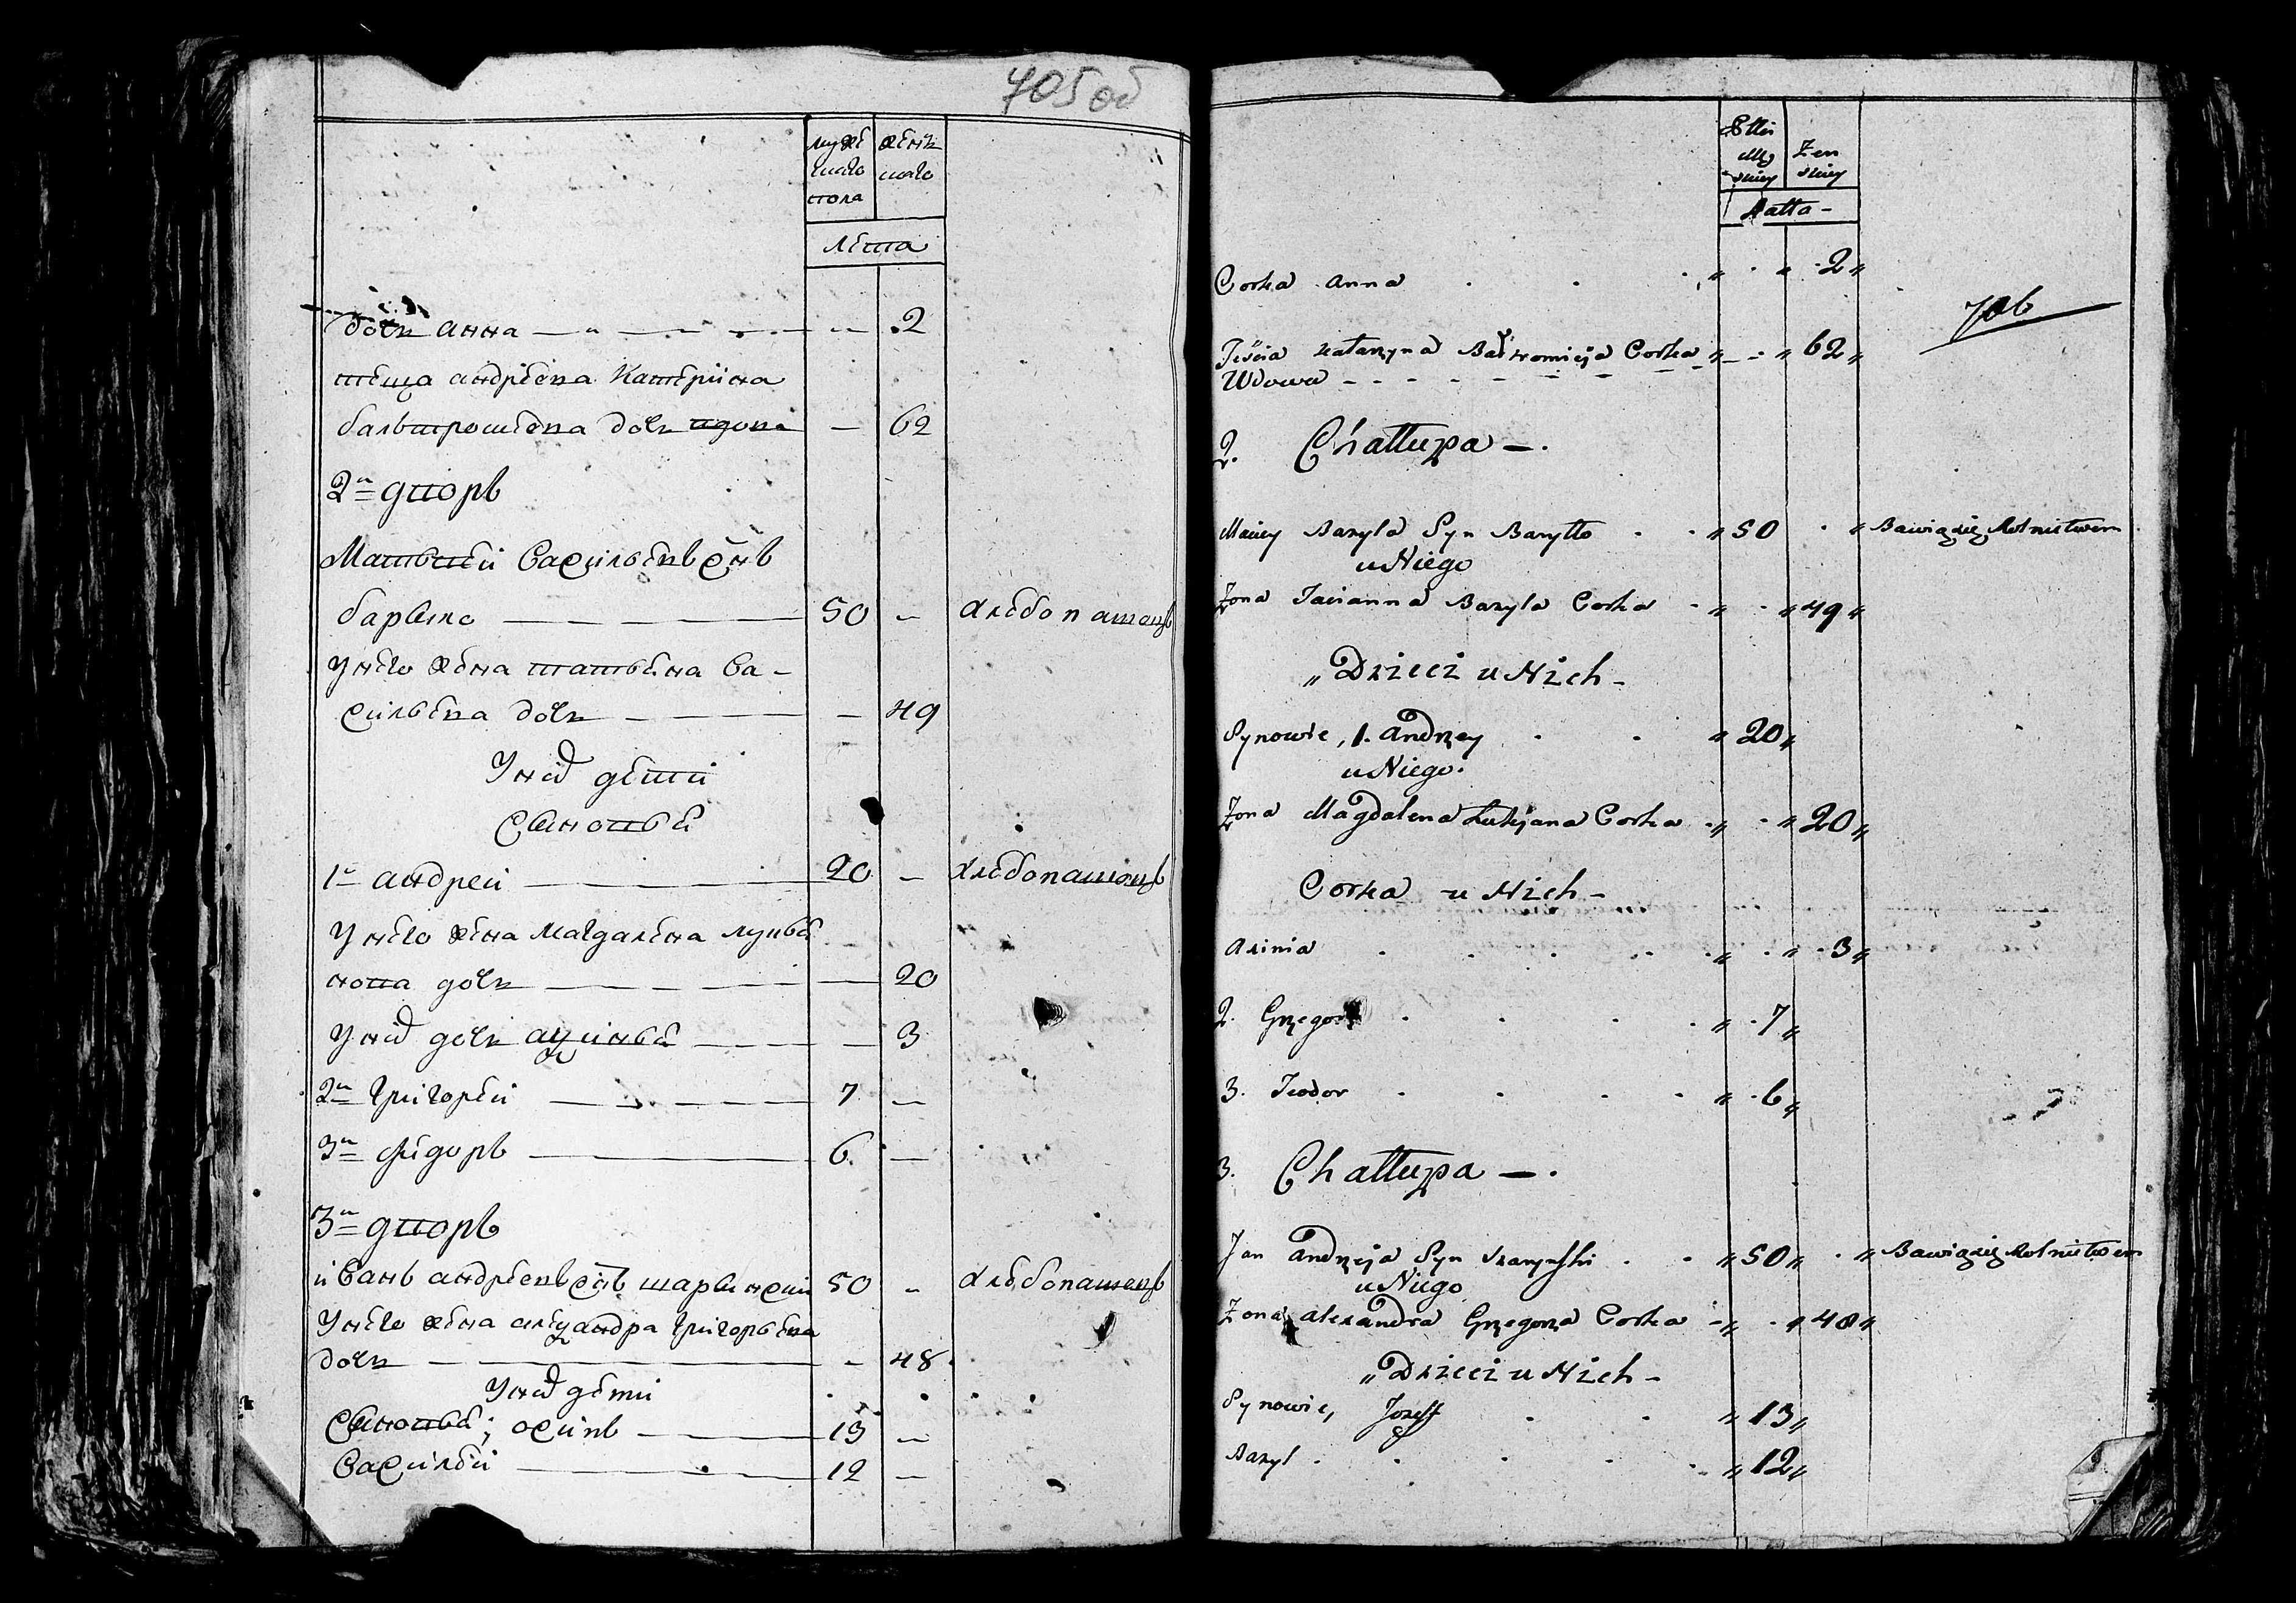 705 об
муже женъ
скаго скаго
пола
лета
дочь анна — " — 2
теща андреева Катерина
бальтрошева дочь вдова — 62
2й дворъ
Матвей Васильевъ снъ
барыло 50 — хлебопашецъ
У него жена татьяна Ва-
сильева дочь — 49
У них дети
Сыновья
1й андреи 20 — хлебопашецъ
У него жена магдалена лукья
нова дочь — 20
У них дочь аксинья — 3
2й григорей 7 —
3й фёдоръ 6 —
3й дворъ
иванъ андреевъ снъ шарынский 50 — хлебопашецъ
У него жена александра григорьева
дочь — 48
У них дети
Сыновья; осипъ 13 —
Василей 12 —
Płći
Mę Żen
skiey skiey
Latta -
Corka Anna „ . „ . 2 „
706
Teścia Katarzyna Bałtromieja Corka „ - . „ 62 „
Wdowa - - - - - - - - -
2. Chałłupa - .
Maciey Bazyla Syn Baryłło . . „ 50 . „ Bawią się Rolnictwem
u Niego
Żona Tacianna Bazyla Corka . „ . „ 49 „
„ Dzieci u Nich -
Synowie, 1. Andrzey . . „ 20 „
u Niego.
Żona Magdalena Łukjana Corka . „ . „ 20 „
Corka u Nich -
Axinia . . . . . „ . „ . 3 „
2. Grzegorz . . . . „ . 7 „
3. Teodor . . . . „ . 6 „
3. Chałłupa - .
Jan Andrzeja Syn Szaryński . . „ 50 „ . „ Bawią się Rolnictwem
u Niego
Żona Alexandra Grzegorza Corka - „ . „ 48 „
„ Dzieci u Nich -
Synowie, Jozeff . . „ 13 „
Bazyl . . . . . „ 12 „